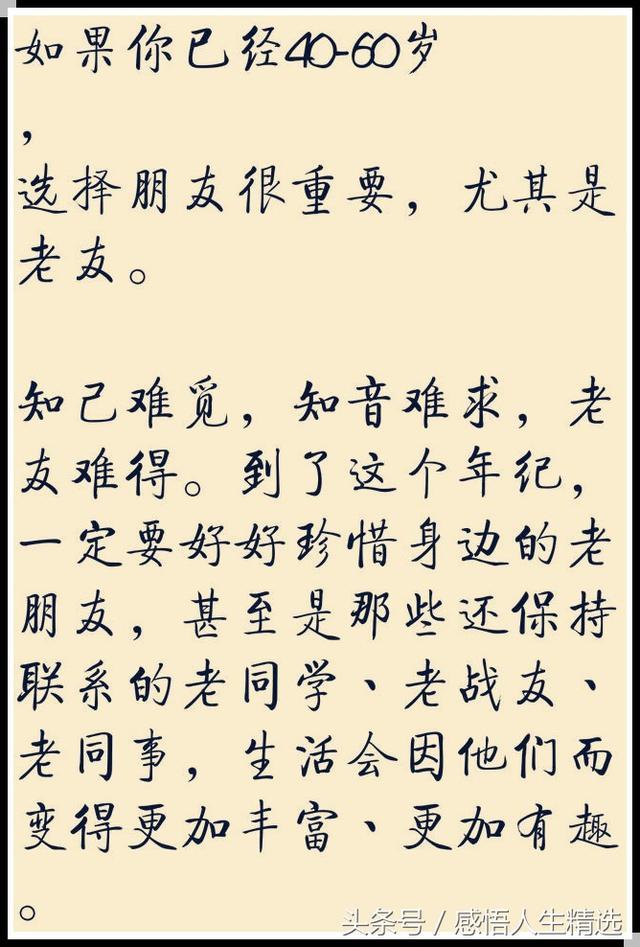 如果你已经40-60岁
，
选择朋友很重要，尤其是
老友。
知己难觅，知音难求，老
友难得。到了这个年纪，
一定要好好珍惜身边的老
朋友，甚至是那些还保持
联系的老同学、老战友、
老同事，生活会因他们而
变得更加丰富、更加有趣
。
头条号／感悟人生精选